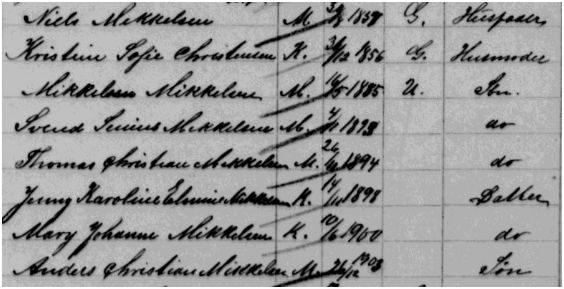 Niels Mikkelsen M. 1857 G. Husfader
Kristine Sofie Christensen K. 31/12 1856 G. Husmoder
Mikkelsen Mikkelsen M. 16/5 1885 U. Søn.
Svend Senius Mikkelsen M. 1893 do
Thomas Christian Mikkelsen M. 26/10 1894 do
Jenny Karoline Elmine Mikkelsen K. 14/11 1898 Datter
Mary Johanne Mikkelsen K. 10/6 1900 do
Anders Christian Mikkelsen M. 26/12 1903 Søn